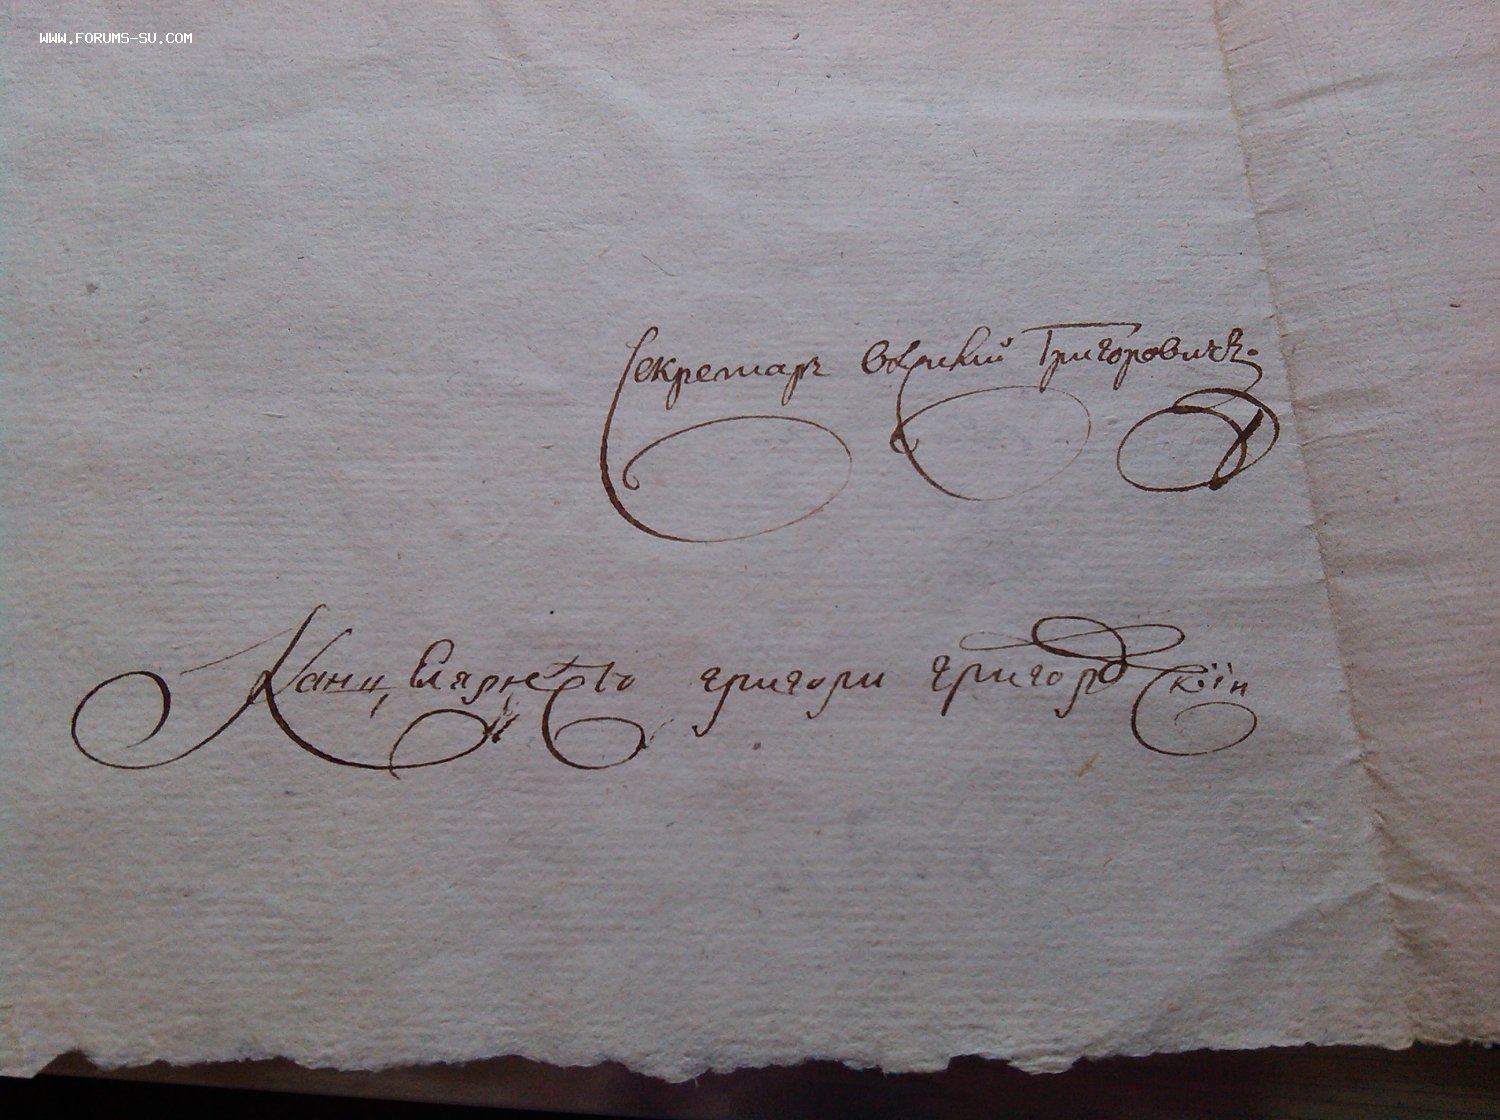 WWW.FORUMS-SU.COM
Секретаръ Григоровичъ.
Канцеляристъ григори григоровскіи